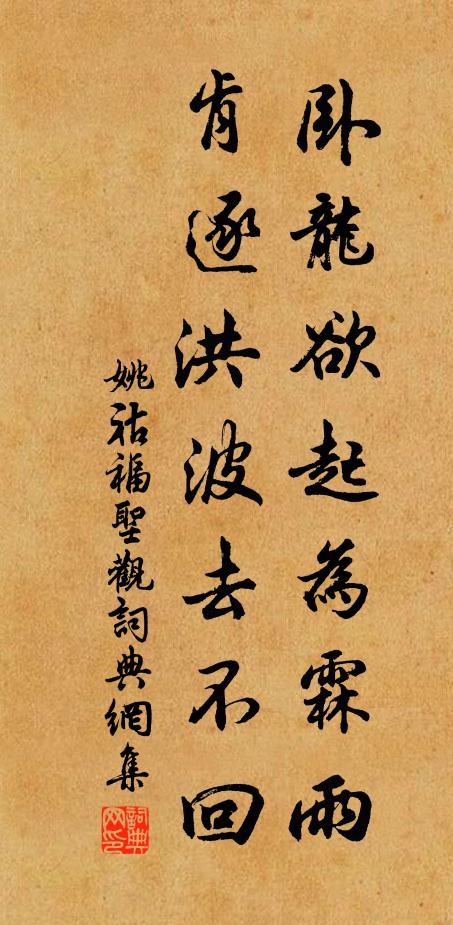 卧龍欲起為霖雨
肯逐洪波去不回
姚祜福聖觀詞典網集
詞典
网印